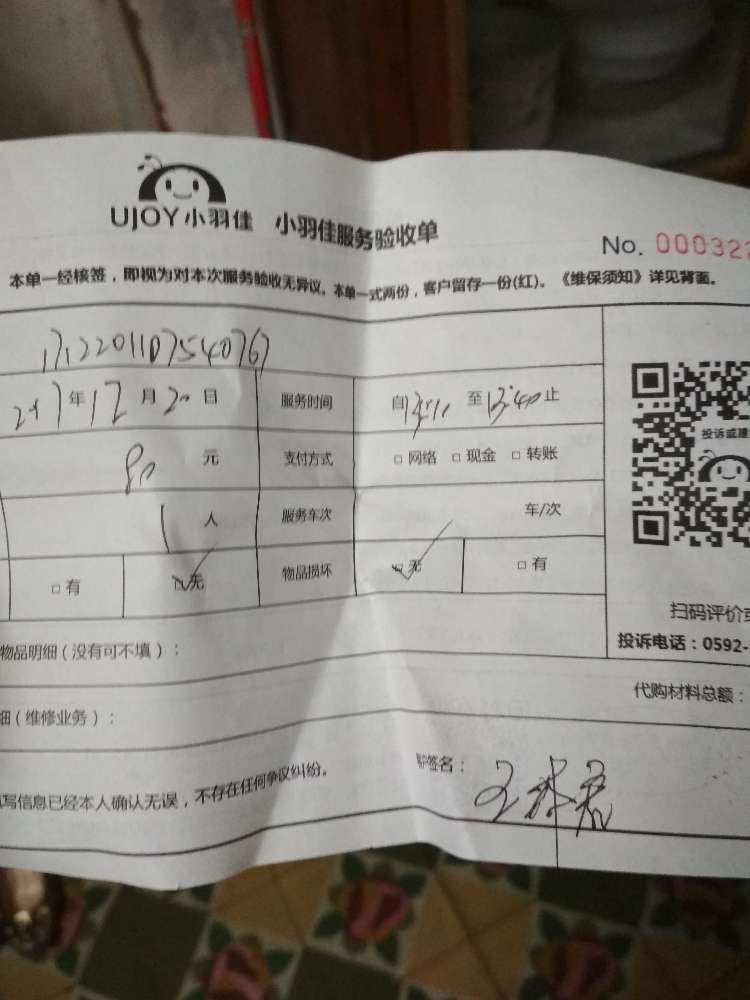 UJOY小羽佳 小羽佳服务验收单
No. 000322
本单一经核签，即视为对本次服务验收无异议。本单一式两份，客户留存一份(红)。《维保须知》详见背面。
1712201107540767
2017年12月20日 服务时间 自13:11至13:40止
80元 支付方式 □网络 □现金 □转账
1人 服务车次 车/次
□有 □无 物品损坏 □无 □有
投诉或建
扫码评价或
投诉电话：0592-
物品明细（没有可不填）：
代购材料总额：
细（维修业务）：
写信息已经本人确认无误，不存在任何争议纠纷。
签名：